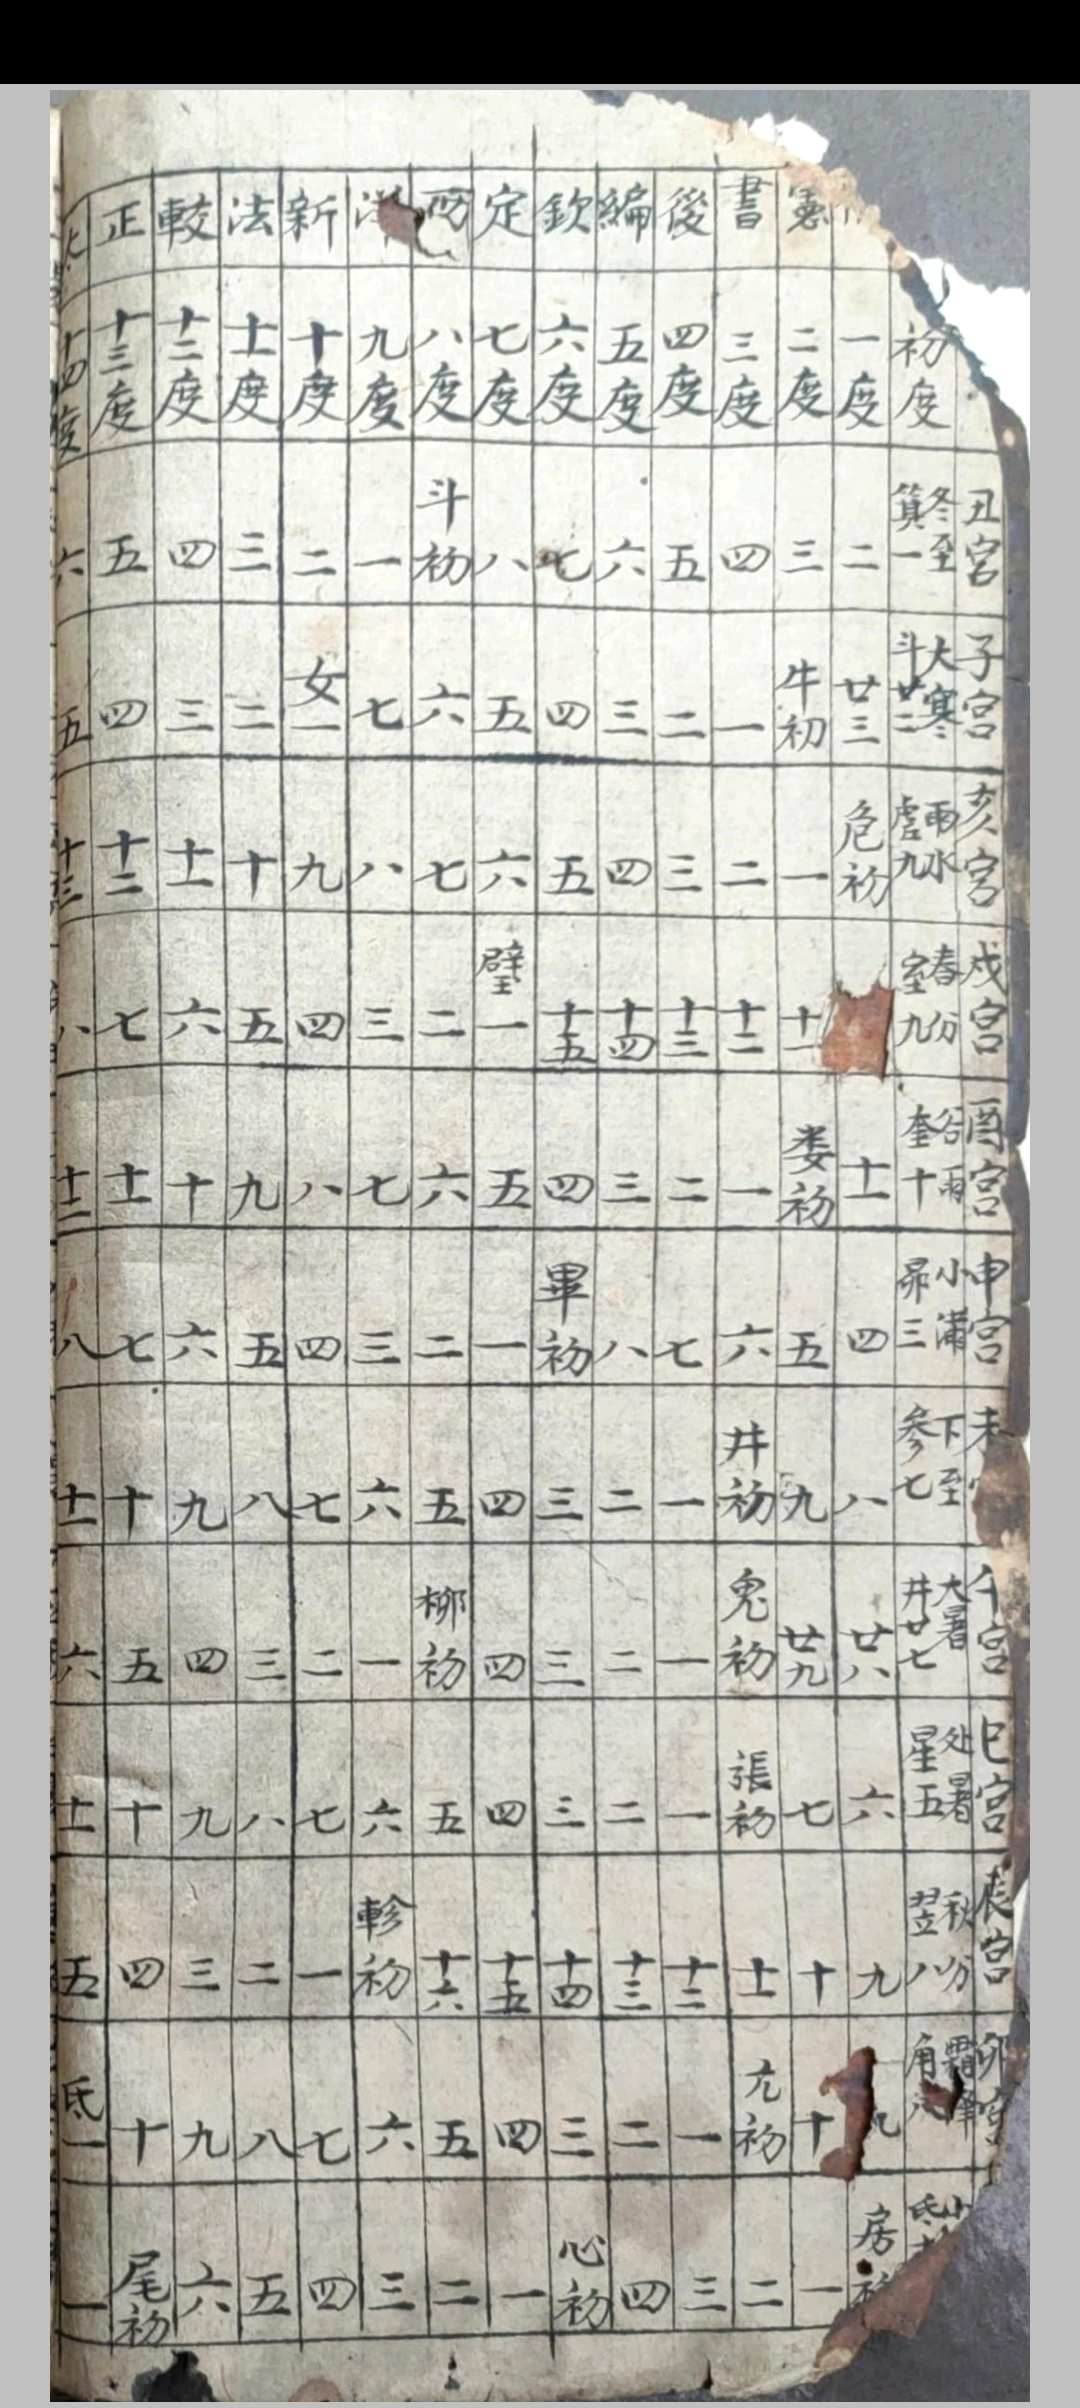 憲書後編欽定西洋新法較正
初度 一度 二度 三度 四度 五度 六度 七度 八度 九度 十度 十一度 十二度 十三度 十四度
丑宮 冬至 箕一 二 三 四 五 六 七 八 斗初 一 二 三 四 五 六
子宮 大寒 斗廿二 廿三 牛初 一 二 三 四 五 六 七 女一 二 三 四 五
亥宮 雨水 虛九 危初 一 二 三 四 五 六 七 八 九 十 十一 十二 十三
戌宮 春分 室九 十一 十二 十三 十四 十五 壁一 二 三 四 五 六 七 八
酉宮 谷雨 奎十 十一 娄初 一 二 三 四 五 六 七 八 九 十 十一 十二
申宮 小滿 昴三 四 五 六 七 八 畢初 一 二 三 四 五 六 七 八
未 下至 參七 八 九 井初 一 二 三 四 五 六 七 八 九 十 十一
午宮 大暑 井廿七 廿八 廿九 鬼初 一 二 三 四 柳初 一 二 三 四 五 六
巳宮 处暑 星五 六 七 張初 一 二 三 四 五 六 七 八 九 十 十一
辰宮 秋分 翌八 九 十 十一 十二 十三 十四 十五 十六 軫初 一 二 三 四 五
卯宮 霜降 角八 十 亢初 一 二 三 四 五 六 七 八 九 十 氐一
氐 房初 一 二 三 四 心初 一 二 三 四 五 六 尾初 一